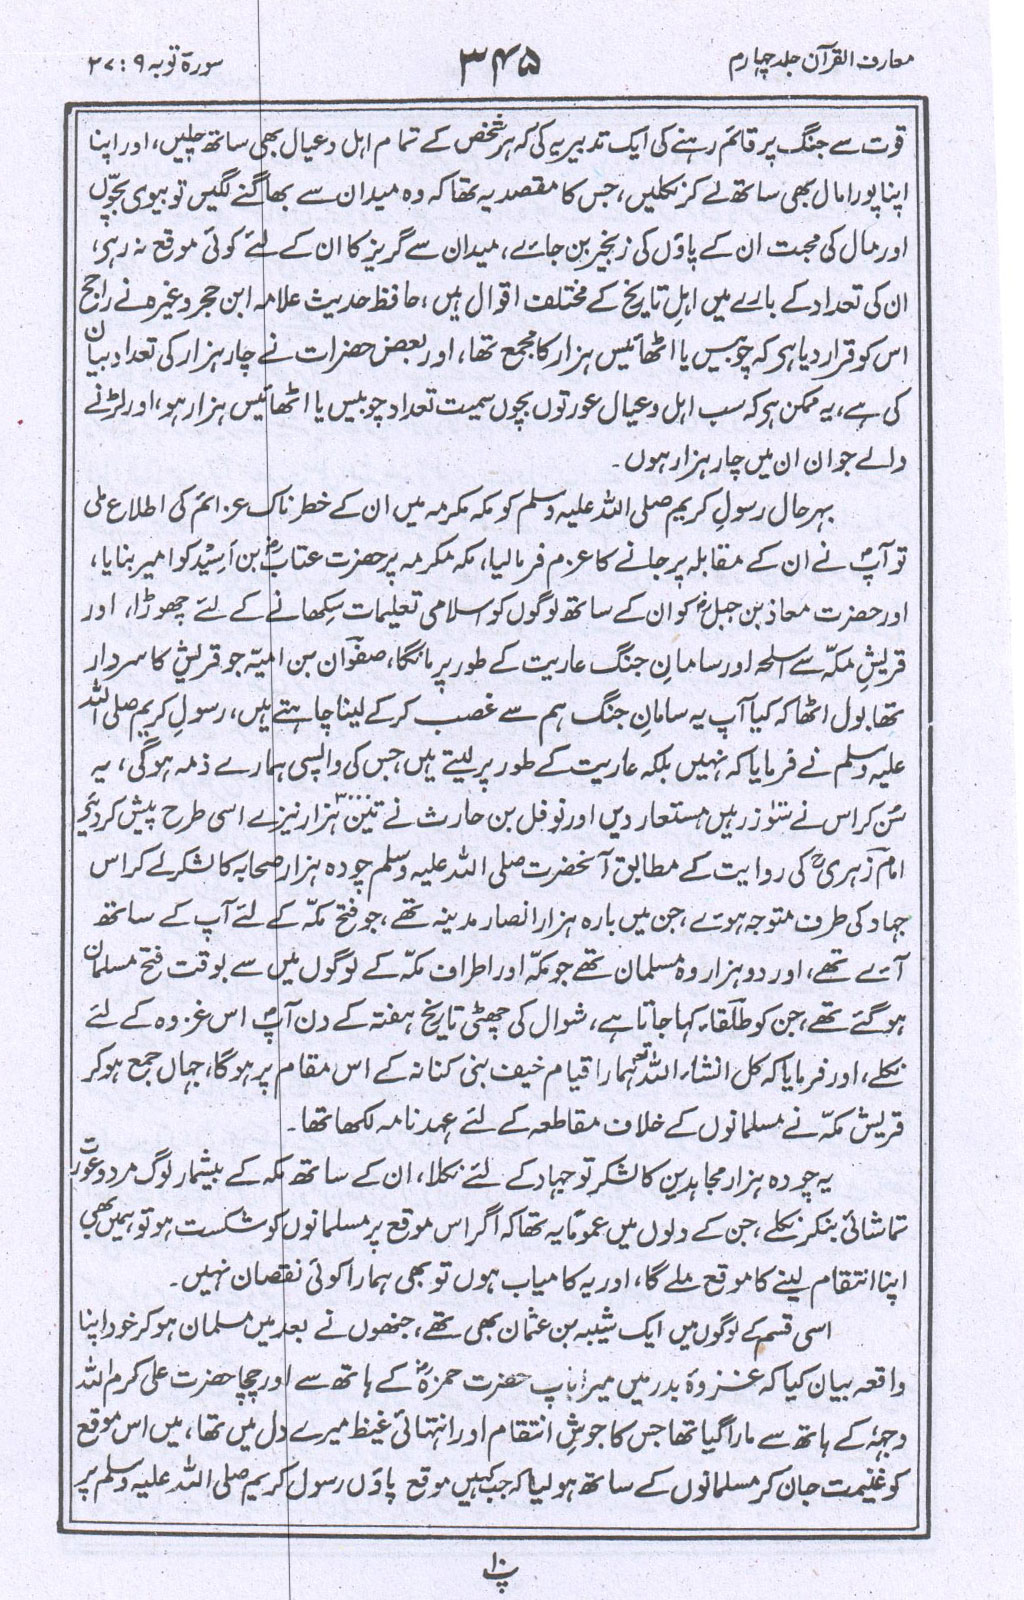 معارف القرآن جلد چہارم
۳۴۵
سورۃ توبہ ۹ : ۲۷
قوت سے جنگ پر قائم رہنے کی ایک تدبیر یہ کی کہ ہر شخص کے تمام اہل و عیال بھی ساتھ چلیں، اور اپنا
اپنا پورا مال بھی ساتھ لے کر نکلیں، جس کا مقصد یہ تھا کہ وہ میدان سے بھاگنے لگیں تو بیوی بچوں
اور مال کی محبت ان کے پاؤں کی زنجیر بن جائے، میدان سے گریز کا ان کے لئے کوئی موقع نہ رہی،
ان کی تعداد کے بارے میں اہلِ تاریخ کے مختلف اقوال ہیں، حافظ حدیث علامہ ابن حجر وغیرہ نے راجح
اس کو قرار دیا ہی کہ چوبیس یا اٹھائیس ہزار کا مجمع تھا، اور بعض حضرات نے چار ہزار کی تعداد بیان
کی ہے، یہ ممکن ہی کہ سب اہل و عیال عورتوں بچوں سمیت تعداد چوبیس یا اٹھائیس ہزار ہو، اور لڑنے
والے جوان ان میں چار ہزار ہوں۔
بہرحال رسولِ کریم صلی اللہ علیہ وسلم کو مکہ مکرمہ میں ان کے خطرناک عزائم کی اطلاع ملی
تو آپؐ نے ان کے مقابلہ پر جانے کا عزم فرمالیا، مکہ مکرمہ پر حضرت عتابؓ بن اَسِیْد کو امیر بنایا،
اور حضرت معاذ بن جبلؓ کو ان کے ساتھ لوگوں کو اسلامی تعلیمات سِکھانے کے لئے چھوڑا، اور
قریشِ مکہّ سے اسلحہ اور سامانِ جنگ عاریت کے طور پر مانگا، صفوان بن امیّہ جو قریش کا سردار
تھا بول اٹھا کہ کیا آپ یہ سامانِ جنگ ہم سے غصب کر کے لینا چاہتے ہیں، رسولِ کریم صلی اللہ
علیہ وسلم نے فرمایا کہ نہیں بلکہ عاریت کے طور پر لیتے ہیں جس کی واپسی ہمارے ذمہ ہوگی، یہ
سُن کر اس نے سَتو زرہیں مستعار دیں اور نوفل بن حارث نے تین ۳۰۰۰ ہزار نیزے اسی طرح پیش کردئیے
امام زہریؒ کی روایت کے مطابق آنحضرت صلی اللہ علیہ وسلم چودہ ہزار صحابہ کا لشکر لے کر اس
جہاد کی طرف متوجہ ہوئے، جن میں بارہ ہزار انصار مدینہ تھے، جو فتح مکّہ کے لئے آپ کے ساتھ
آئے تھے، اور دو ہزار وہ مسلمان تھے جو مکّہ اور اطراف مکّہ کے لوگوں میں سے بوقت فتح مسلمان
ہو گئے تھے، جن کو طلقاء کہا جاتا ہے، شوال کی چھٹی تاریخ ہفتہ کے دن آپؐ اس غزوہ کے لئے
نکلے، اور فرمایا کہ کل انشاء اللہ تعالیٰ ہمارا قیام خیف بنی کنانہ کے اس مقام پر ہوگا، جہاں جمع ہو کر
قریش مکّہ نے مسلمانوں کے خلاف مقاطعہ کے لئے عہدنامہ لکھا تھا۔
یہ چودہ ہزار مجاہدین کا لشکر تو جہاد کے لئے نکلا، ان کے ساتھ مکہ کے بیشمار لوگ مرد و عورت
تماشائی بنکر نکلے، جن کے دلوں میں عموماً یہ تھا کہ اگر اس موقع پر مسلمانوں کو شکست ہو تو ہمیں بھی
اپنا انتقام لینے کا موقع ملے گا، اور یہ کامیاب ہوں تو بھی ہمارا کوئی نقصان نہیں۔
اسی قسم کے لوگوں میں ایک شیبہ بن عثمان بھی تھے، جنھوں نے بعد میں مسلمان ہو کر خود اپنا
واقعہ بیان کیا کہ غزوۂ بدر میں میرا باپ حضرت حمزہؓ کے ہاتھ سے اور چچا حضرت علی کرم اللہ
وجہہٗ کے ہاتھ سے مارا گیا تھا جس کا جوشِ انتقام اور انتہائی غیظ میرے دل میں تھا، میں اس موقع
کو غنیمت جان کر مسلمانوں کے ساتھ ہولیا کہ جب کہیں موقع پاؤں رسول کریم صلی اللہ علیہ وسلم پر
پ۱۰